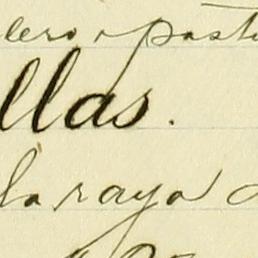 lero o pasto
llas.
la raya d